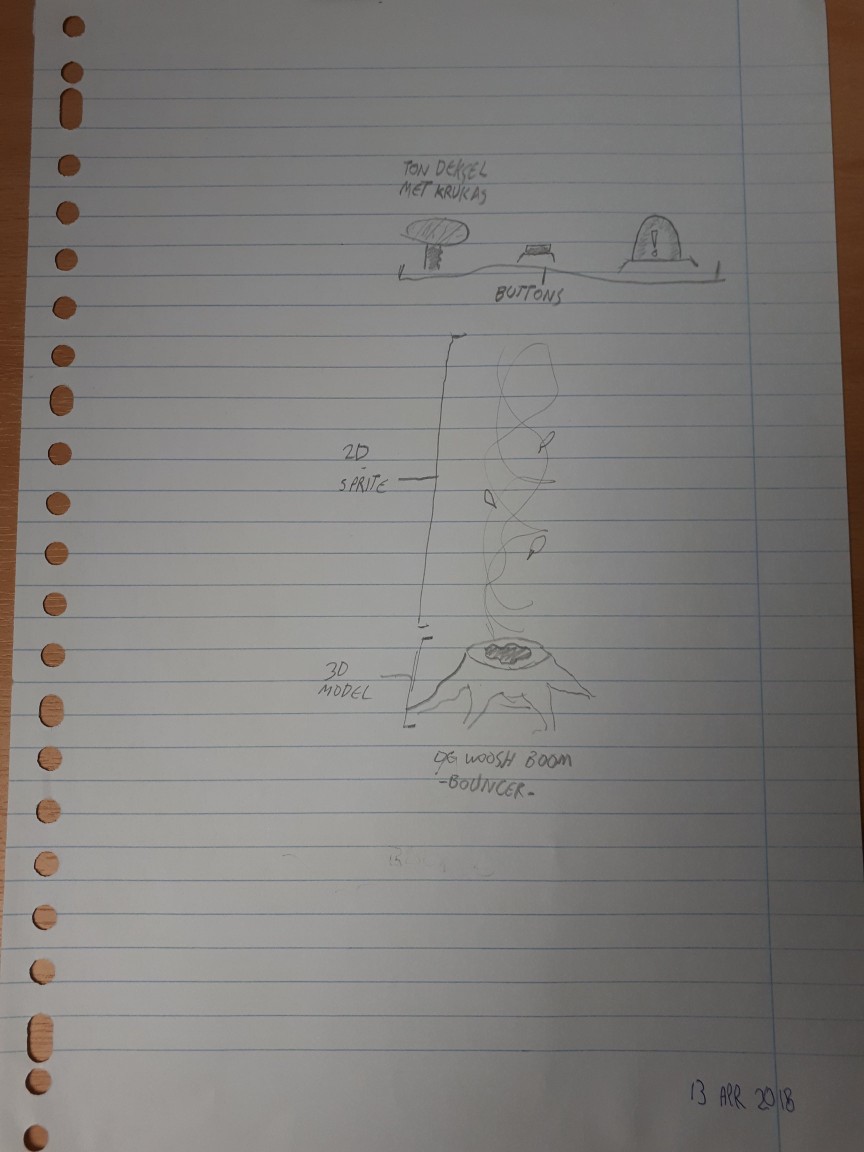 TON DEKSEL
MET KRUKAS
!
BUTTONS
2D
-
SPRITE
3D
MODEL
WOOSH BOOM
-BOUNCER-
13 APR 2018